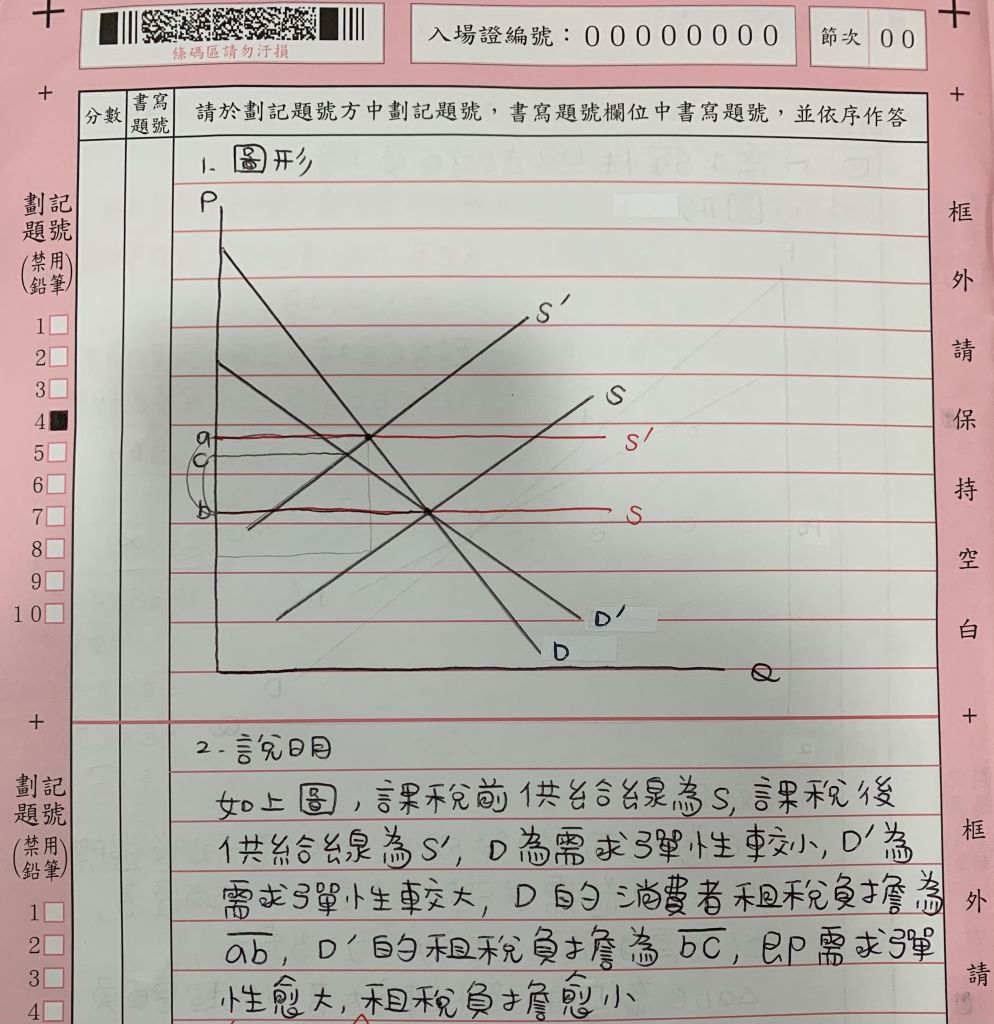 條碼區請勿汙損
入場證編號：00000000
節次 00
分數
書寫題號
請於劃記題號方中劃記題號，書寫題號欄位中書寫題號，並依序作答
劃記題號
(禁用鉛筆)
1
2
3
4
5
6
7
8
9
10
1. 圖形
P
S'
S
a
S'
c
b
S
D'
D
Q
框外請保持空白
2. 說明
如上圖，課稅前供給線為S，課稅後
供給線為S'，D為需求彈性較小，D'為
需求彈性較大，D的消費者租稅負擔為
ab，D'的租稅負擔為bc，即需求彈
性愈大，租稅負擔愈小
劃記題號
(禁用鉛筆)
1
2
3
4
框外請